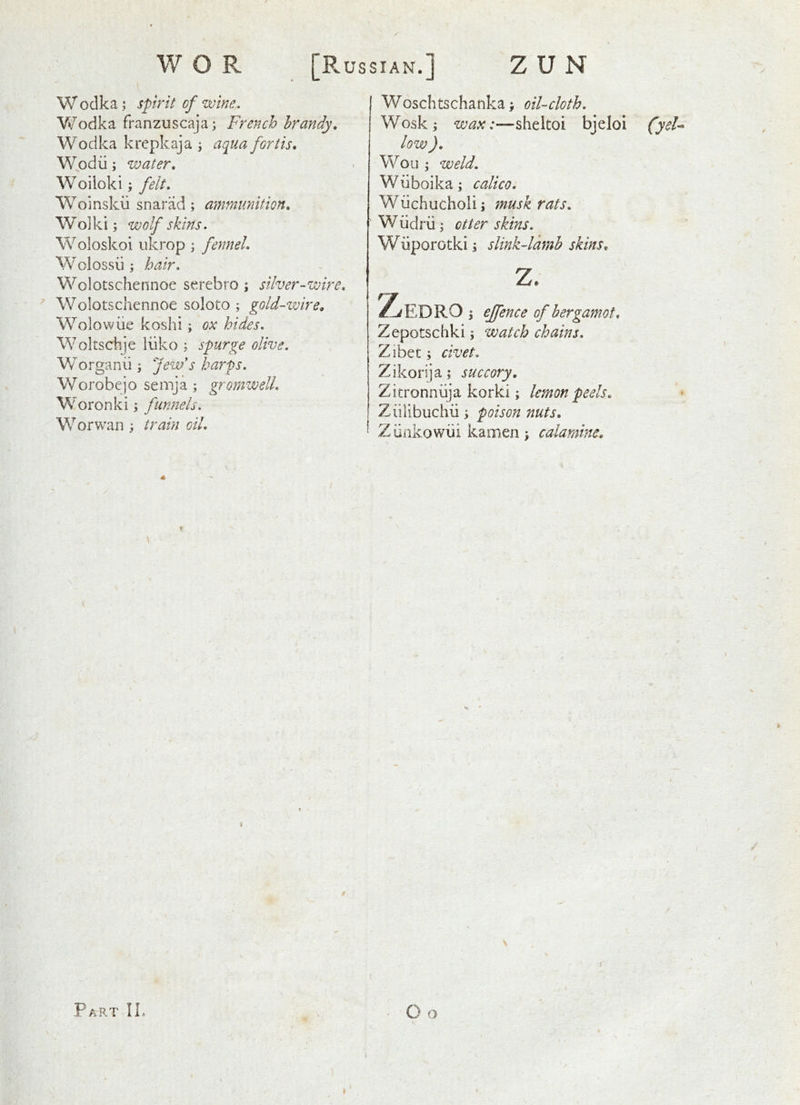 WOR [RUSSIAN.] ZUN
Wodka; spirit of wine.
Wodka franzuscaja; French brandy.
Wodka krepkaja; aqua fortis.
Wodü; water.
Woiloki; felt.
Woinskü snaräd; ammunition.
Wolki; wolf skins.
Woloskoi ukrop; fennel.
Wolossü; hair.
Wolotschennoe serebro; silver-wire.
Wolotschennoe soloto; gold-wire.
Wolowüe koshi; ox hides.
Woltschje lüko; spurge olive.
Worganü; Jew's harps.
Worobejo semja; gromwell.
Woronki; funnels.
Worwan; train oil.
Woschtschanka; oil-cloth.
Wosk; wax:—sheltoi bjeloi (yel-
low).
Wou; weld.
Wüboika; calico.
Wüchucholi; musk rats.
Wüdrü; otter skins.
Wüporotki; slink-lamb skins.
Z.
ZEDRO; essence of bergamot.
Zepotschki; watch chains.
Zibet; civet.
Zikorija; succory.
Zitronnüja korki; lemon peels.
Zülibuchü; poison nuts.
Zünkowüi kamen; calamine.
PART II. O o